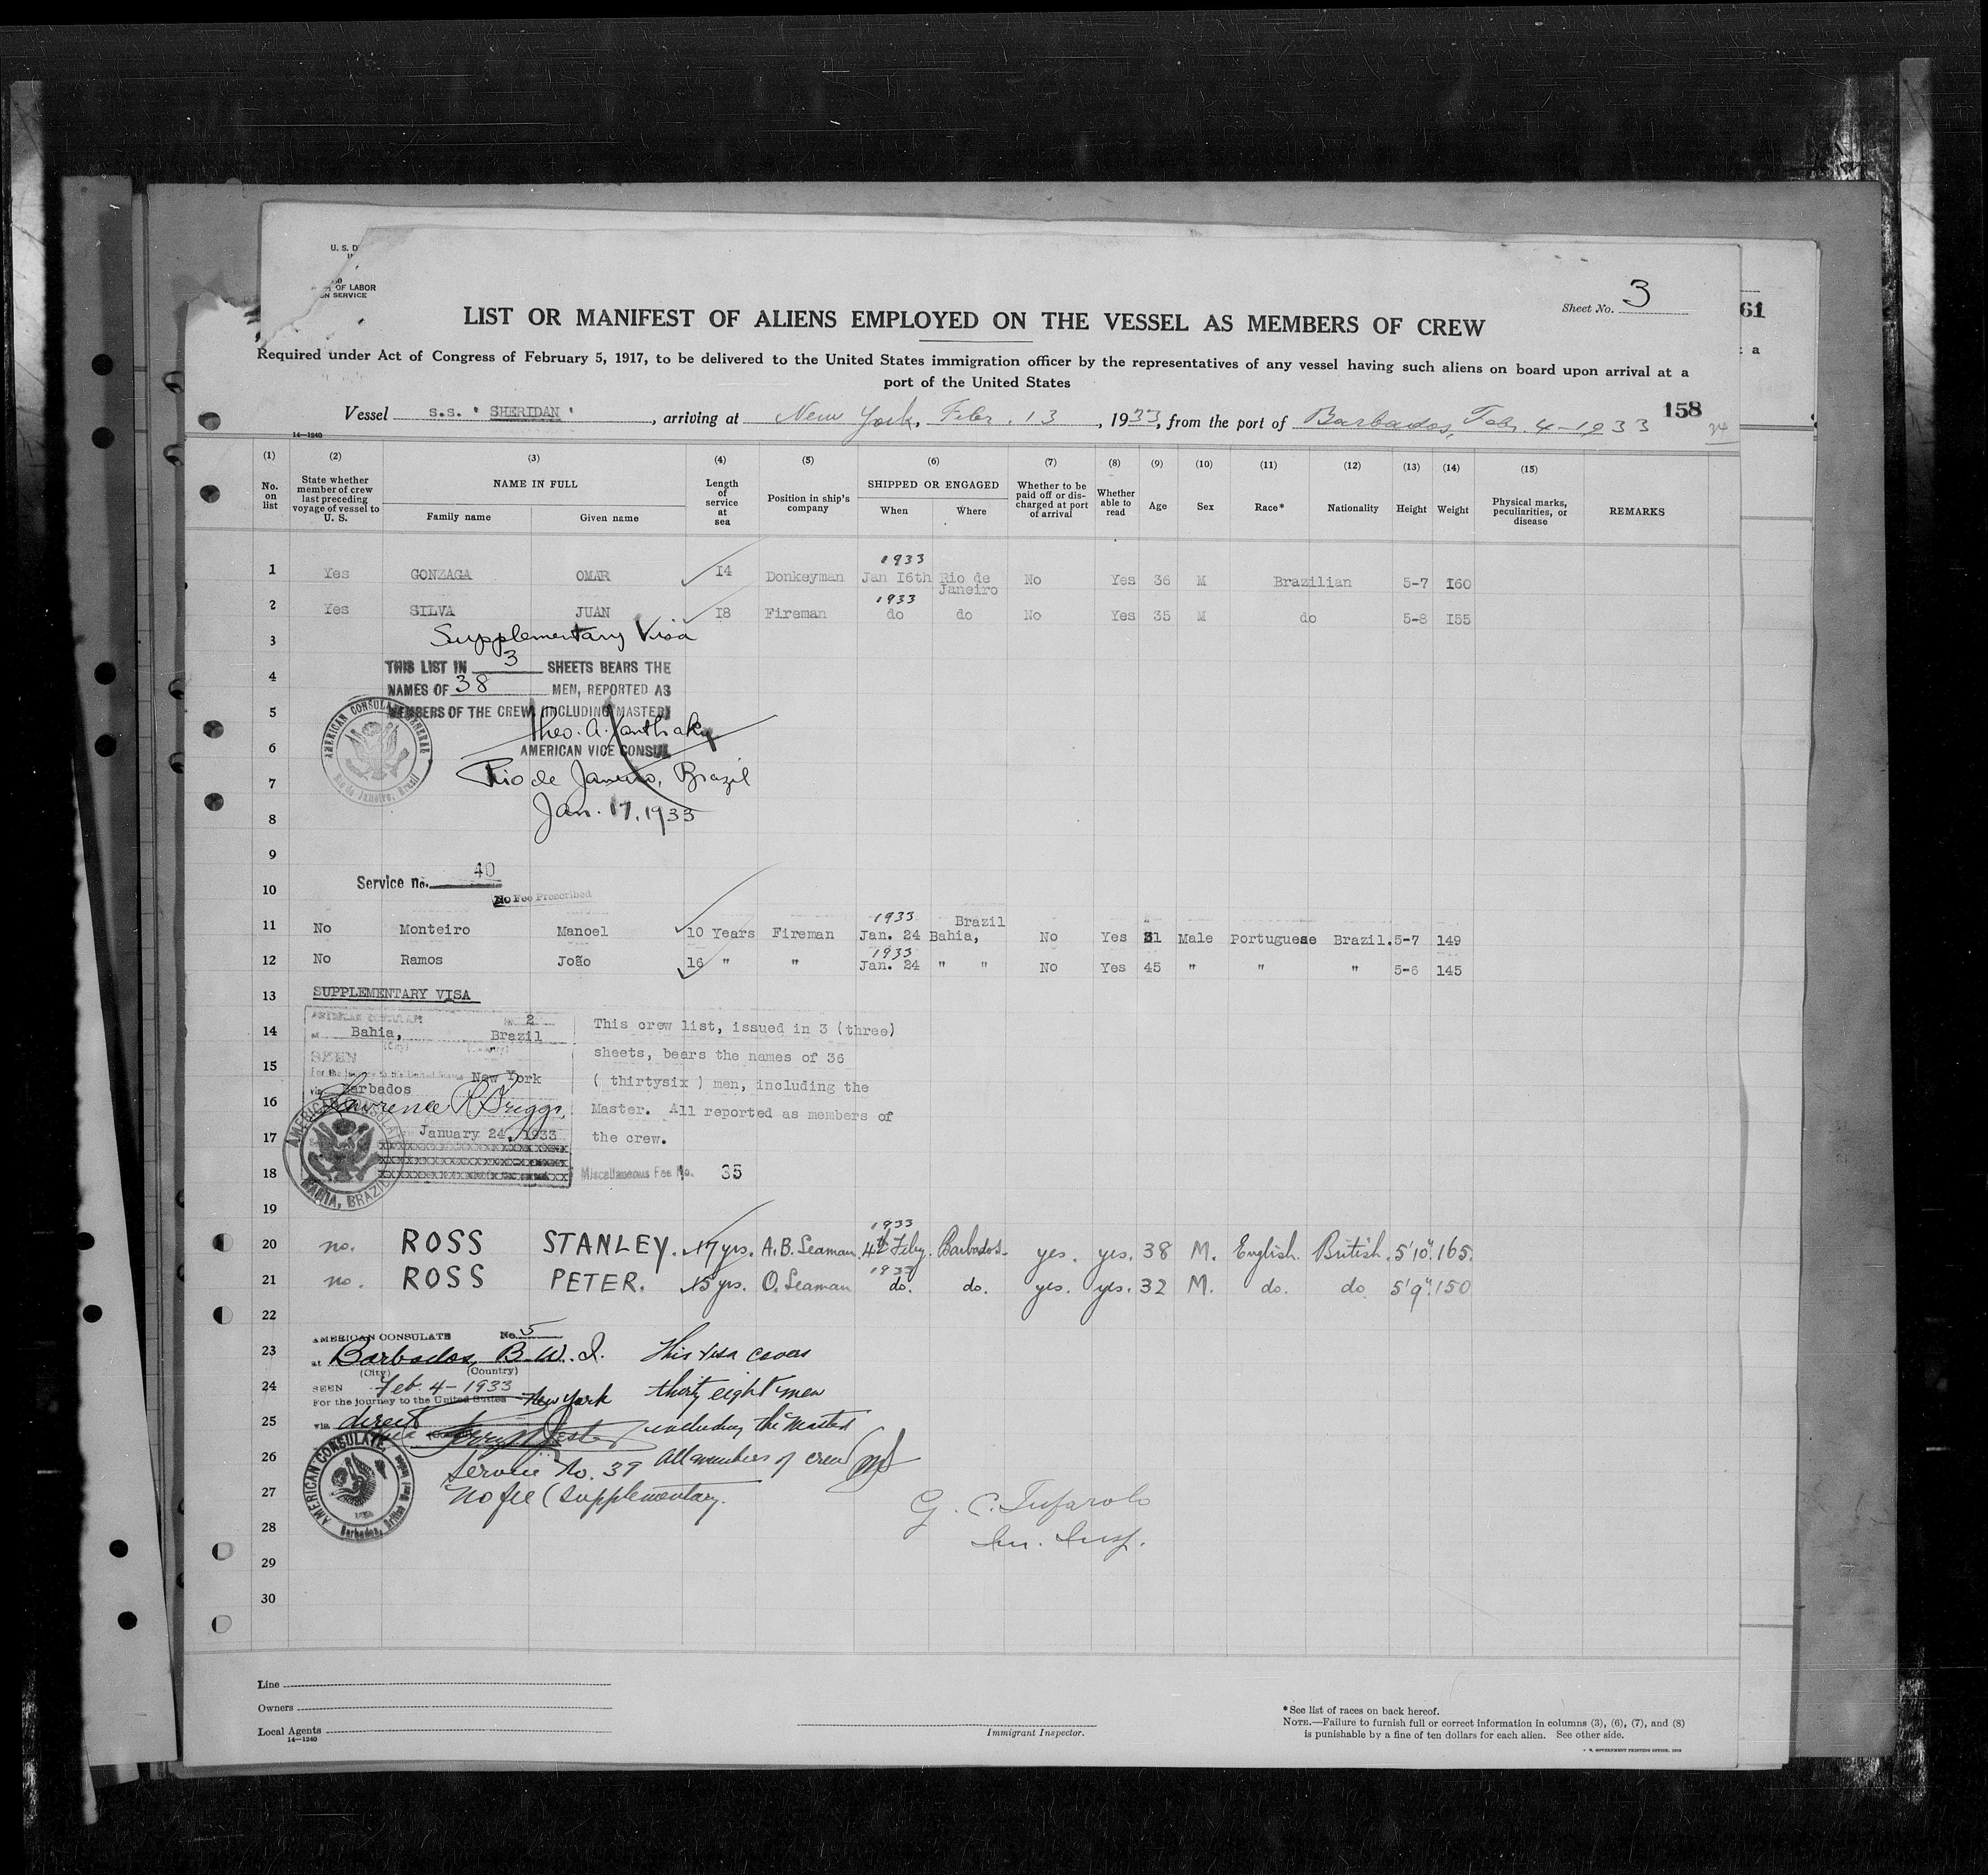 U. S. D
OF LABOR
ON SERVICE
Sheet No. 3
61
LIST OR MANIFEST OF ALIENS EMPLOYED ON THE VESSEL AS MEMBERS OF CREW
Required under Act of Congress of February 5, 1917, to be delivered to the United States immigration officer by the representatives of any vessel having such aliens on board upon arrival at a
port of the United States
Vessel S.S. " SHERIDAN ", arriving at New York, Febr. 13, 1933, from the port of Barbados, Febr. 4-1933
158
14—1240
(1) (2) (3) (4) (5) (6) (7) (8) (9) (10) (11) (12) (13) (14) (15)
No. on list
State whether member of crew last preceding voyage of vessel to U. S.
NAME IN FULL
Family name
Given name
Length of service at sea
Position in ship's company
SHIPPED OR ENGAGED
When
Where
Whether to be paid off or discharged at port of arrival
Whether able to read
Age
Sex
Race*
Nationality
Height
Weight
Physical marks, peculiarities, or disease
REMARKS
1 Yes GONZAGA OMAR 14 Donkeyman 1933 Jan 16th Rio de Janeiro No Yes 36 M Brazilian 5-7 160
2 Yes SILVA JUAN 18 Fireman 1933 do do No Yes 35 M do 5-8 155
3 Supplementary Visa
4 THIS LIST IN 3 SHEETS BEARS THE
NAMES OF 38 MEN, REPORTED AS
5 MEMBERS OF THE CREW (INCLUDING MASTER)
Theo. A. Xanthaky
6 AMERICAN VICE CONSUL
7 Rio de Janeiro, Brazil
8 Jan. 17, 1933
AMERICAN CONSULATE GENERAL
Rio de Janeiro, Brazil
9
Service no. 40
10
No Fee Prescribed
11 No Monteiro Manoel 10 Years Fireman 1933 Jan. 24 Bahia, Brazil No Yes 31 Male Portuguese Brazil. 5-7 149
12 No Ramos João 16 " " 1933 Jan. 24 " " No Yes 45 " " " 5-6 145
13 SUPPLEMENTARY VISA
AMERICAN CONSULATE No. 2
14 at Bahia, Brazil
(City) (Country)
15 SEEN
For the journey to the United States New York
via Barbados
16 Lawrence P. Briggs,
17 January 24, 1933
18
AMERICAN CONSULATE
BAHIA, BRAZIL
This crew list, issued in 3 (three)
sheets, bears the names of 36
( thirtysix ) men, including the
Master. All reported as members of
the crew.
Miscellaneous Fee No. 35
19
20 no. ROSS STANLEY. 17 yrs. A.B. Seaman. 1933 4th Feby. Barbados. yes. yes. 38 M. English. British. 5'10". 165.
21 no. ROSS PETER. 15 yrs. O. Seaman 1933 do. do. yes. yes. 32 M. do. do. 5'9". 150
22
AMERICAN CONSULATE No. 5
23 at Barbados, B.W.I.
(City) (Country)
24 SEEN Feb. 4-1933
For the journey to the United States New York
25 via direct
26 Service No. 39
27 No fee (Supplementary.
28
29
30
AMERICAN CONSULATE,
Barbados, British West Indies
This visa covers
thirty eight men
including the Master
All members of crew
Im. Insp.
Line
Owners
Local Agents
14—1240
Immigrant Inspector.
* See list of races on back hereof.
NOTE.—Failure to furnish full or correct information in columns (3), (6), (7), and (8)
is punishable by a fine of ten dollars for each alien. See other side.